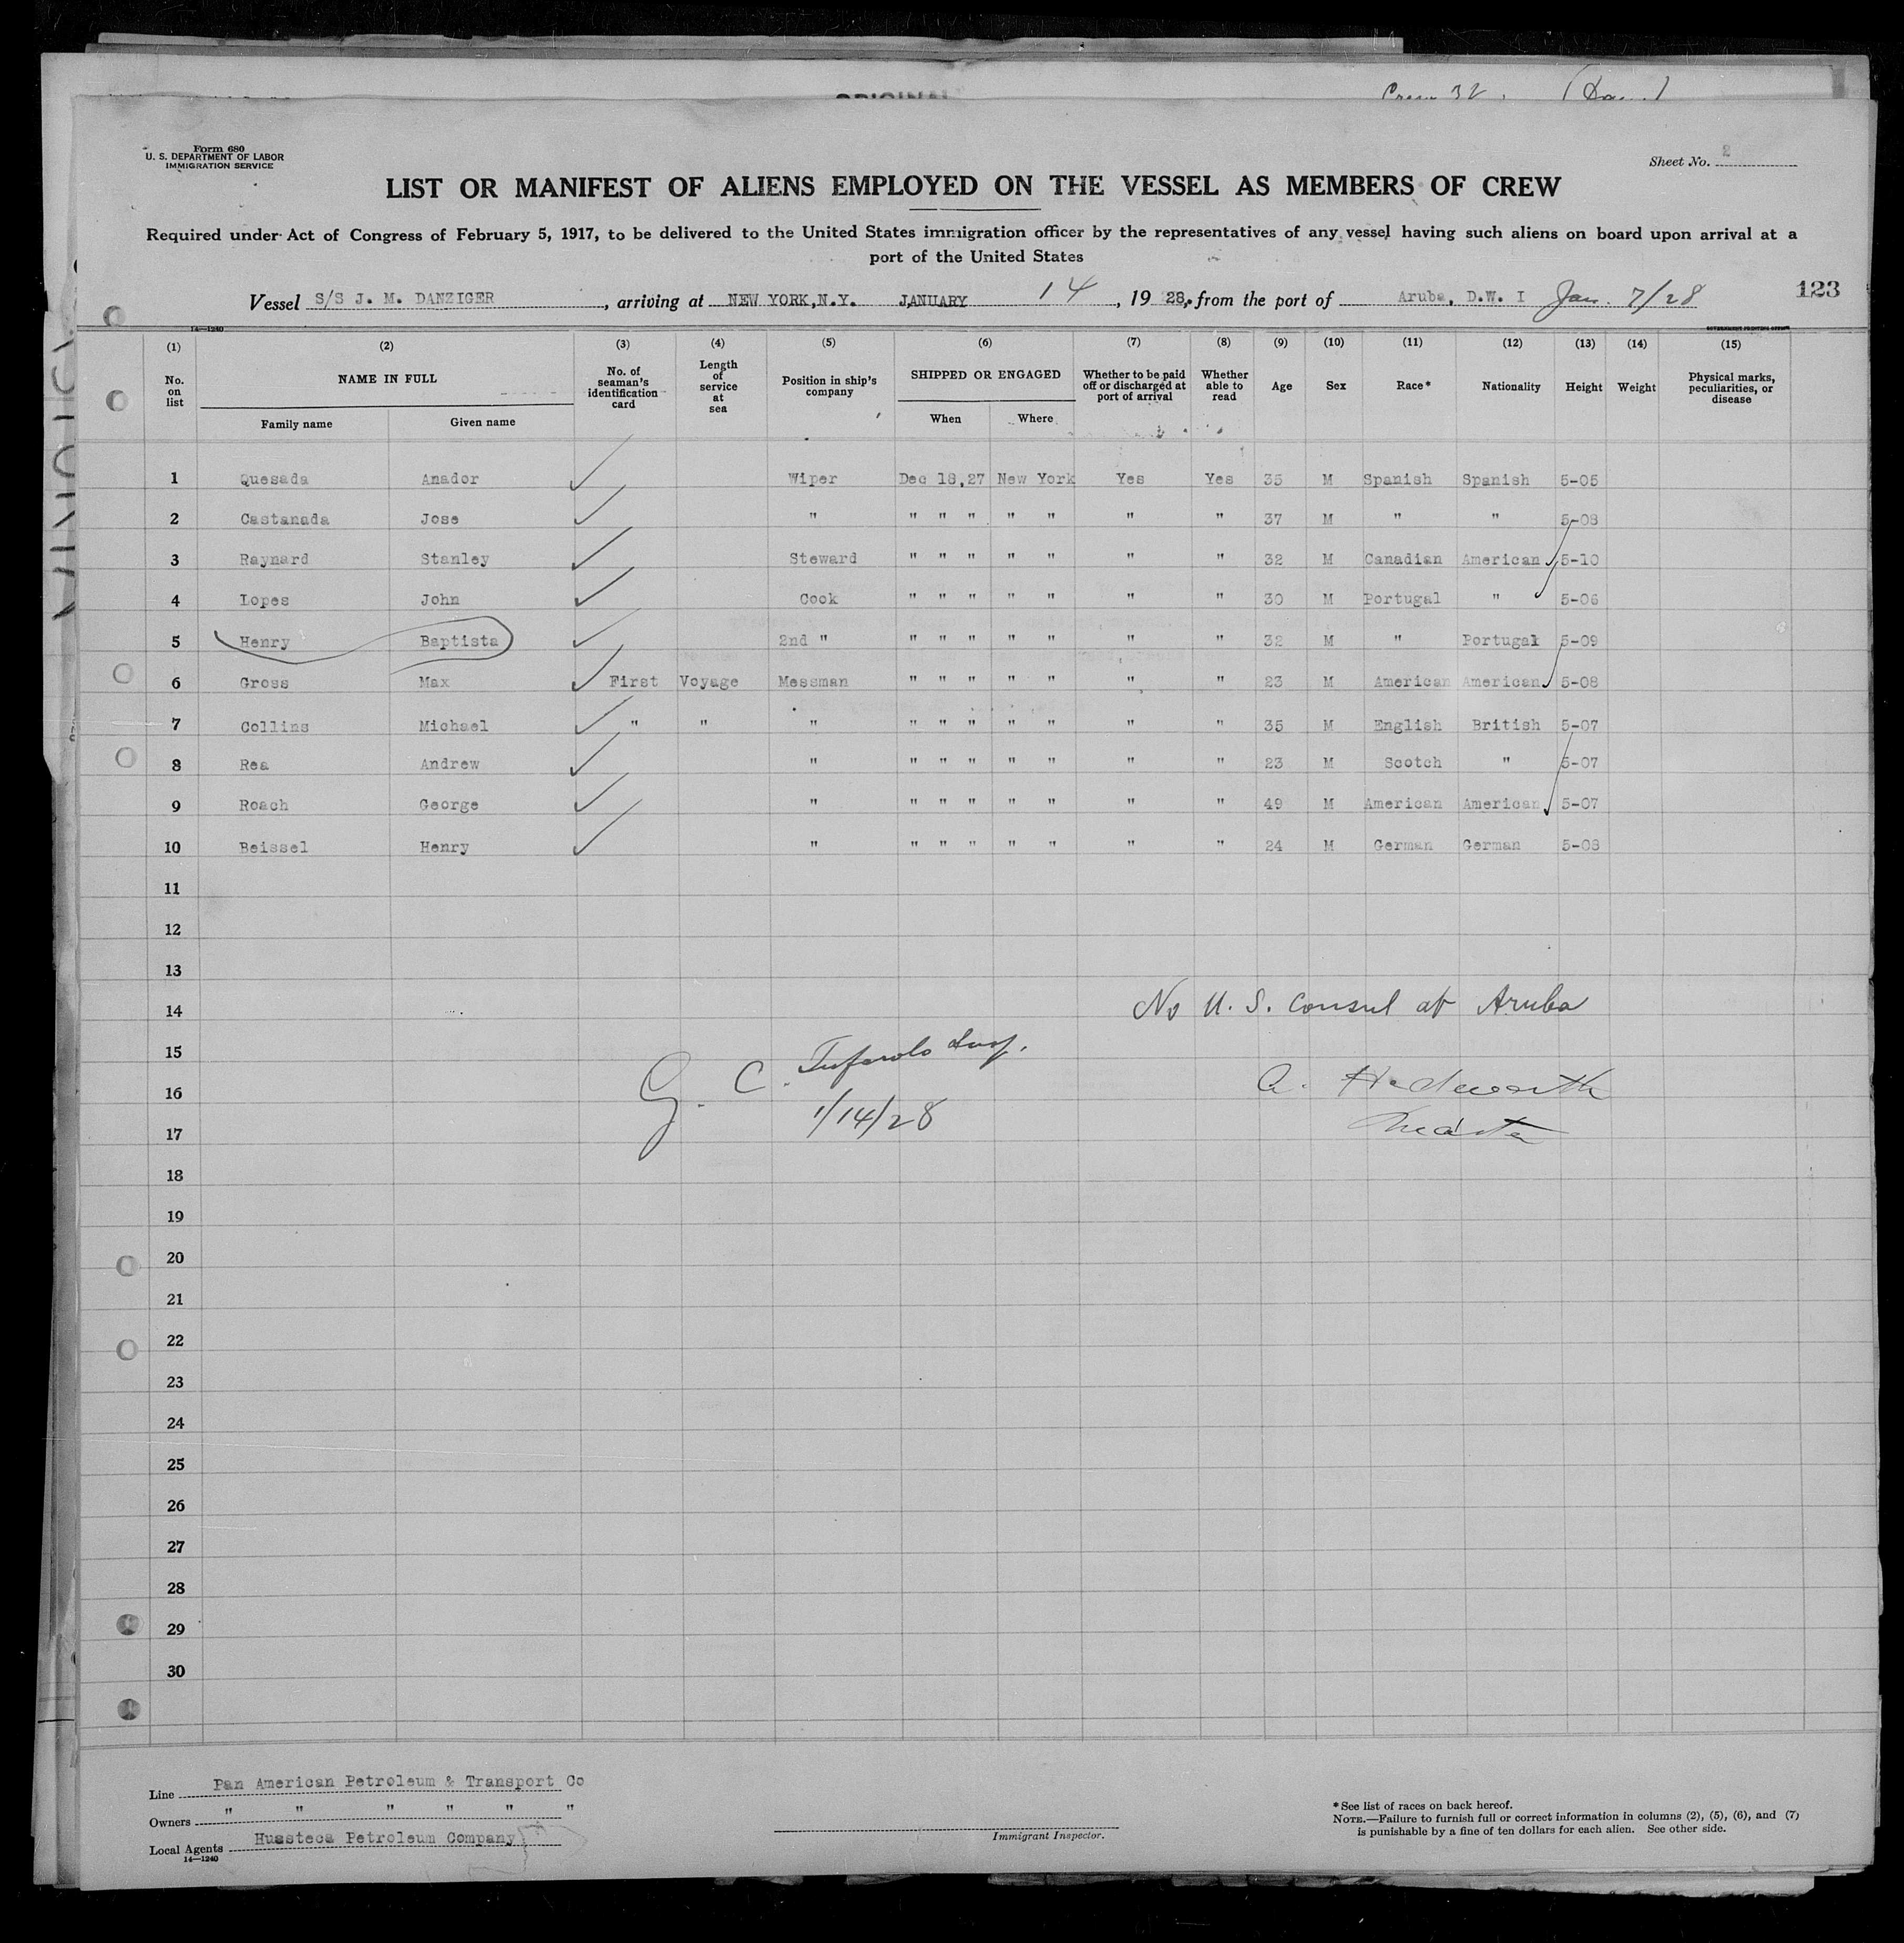 Form 680
U. S. DEPARTMENT OF LABOR
IMMIGRATION SERVICE
Sheet No. 2
LIST OR MANIFEST OF ALIENS EMPLOYED ON THE VESSEL AS MEMBERS OF CREW
Required under Act of Congress of February 5, 1917, to be delivered to the United States immigration officer by the representatives of any vessel having such aliens on board upon arrival at a
port of the United States
Vessel S/S J. M. DANZIGER, arriving at NEW YORK, N.Y. JANUARY 14, 1928, from the port of Aruba, D.W. I Jan. 7/28 123
14—1240 GOVERNMENT PRINTING OFFICE
(1) (2) (3) (4) (5) (6) (7) (8) (9) (10) (11) (12) (13) (14) (15)
No. on list NAME IN FULL No. of seaman's identification card Length of service at sea Position in ship's company SHIPPED OR ENGAGED Whether to be paid off or discharged at port of arrival Whether able to read Age Sex Race* Nationality Height Weight Physical marks, peculiarities, or disease
Family name Given name When Where
1 Quesada Anador Wiper Dec 18,27 New York Yes Yes 35 M Spanish Spanish 5-05
2 Castanada Jose " " " " " " " " 37 M " " 5-08
3 Raynard Stanley Steward " " " " " " " 32 M Canadian American 5-10
4 Lopes John Cook " " " " " " " 30 M Portugal " 5-06
5 Henry Baptista 2nd " " " " " " " " 32 M " Portugal 5-09
6 Gross Max First Voyage Messman " " " " " " " 23 M American American 5-08
7 Collins Michael " " " " " " " " " " 35 M English British 5-07
8 Rea Andrew " " " " " " " " 23 M Scotch " 5-07
9 Roach George " " " " " " " " 49 M American American 5-07
10 Beissel Henry " " " " " " " " 24 M German German 5-08
11
12
13
14 No U. S. Consul at Aruba
15
G. C. Insp.
16 A. Hedworth
1/14/28
17 Master
18
19
20
21
22
23
24
25
26
27
28
29
30
Line Pan American Petroleum & Transport Co
Owners " " " " " "
Local Agents Huasteca Petroleum Company
14—1240
Immigrant Inspector.
*See list of races on back hereof.
NOTE.—Failure to furnish full or correct information in columns (2), (5), (6), and (7)
is punishable by a fine of ten dollars for each alien. See other side.